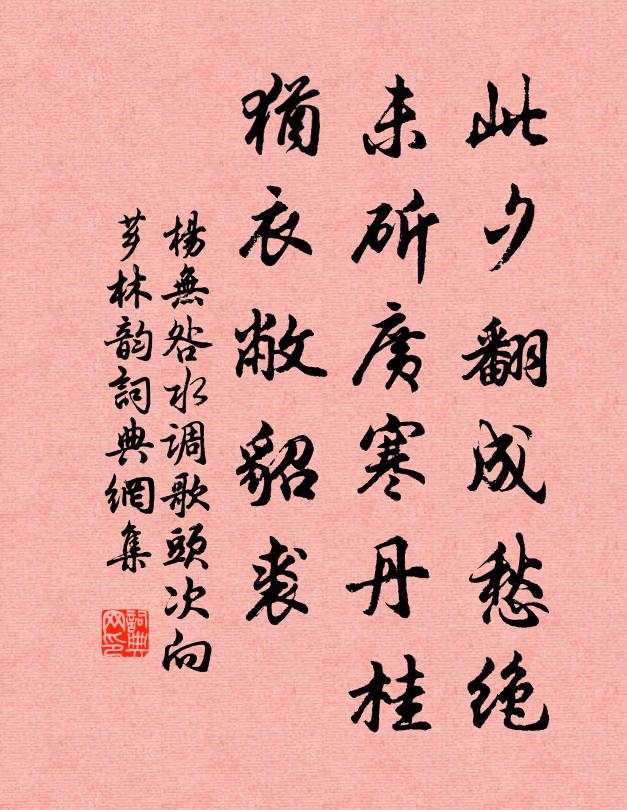 此夕翻成愁绝
未斫广寒丹桂
犹衣敝貂裘
杨無咎水调歌頭次向
芗林韵詞典網集
詞典
网印